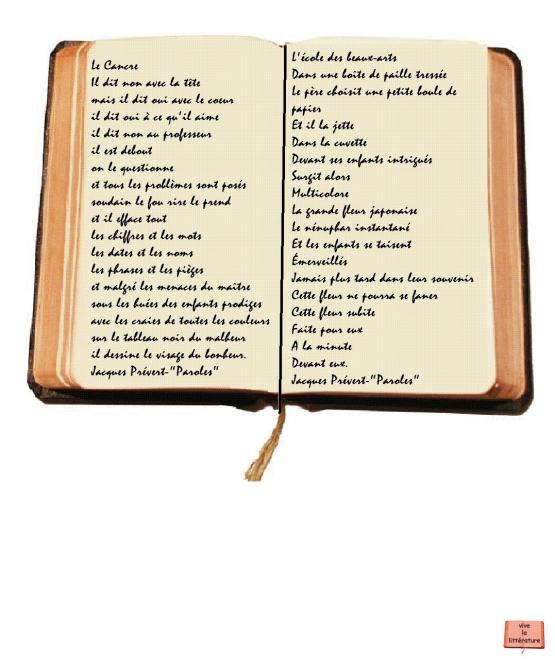 Le Cancre
Il dit non avec la tête
mais il dit oui avec le coeur
il dit oui à ce qu'il aime
il dit non au professeur
il est debout
on le questionne
et tous les problèmes sont posés
soudain le fou rire le prend
et il efface tout
les chiffres et les mots
les dates et les noms
les phrases et les pièges
et malgré les menaces du maître
sous les huées des enfants prodiges
avec les craies de toutes les couleurs
sur le tableau noir du malheur
il dessine le visage du bonheur.
Jacques Prévert-"Paroles"
L'école des beaux-arts
Dans une boîte de paille tressée
Le père choisit une petite boule de
papier
Et il la jette
Dans la cuvette
Devant ses enfants intrigués
Surgit alors
Multicolore
La grande fleur japonaise
Le nénuphar instantané
Et les enfants se taisent
Émerveillés
Jamais plus tard dans leur souvenir
Cette fleur ne pourra se faner
Cette fleur subite
Faite pour eux
A la minute
Devant eux.
Jacques Prévert-"Paroles"
vive
la
littérature